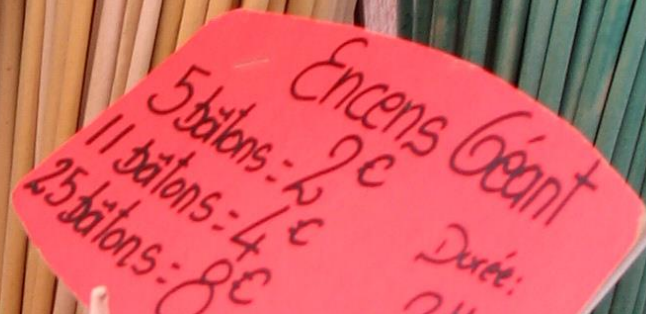 Encens Géant
5 bâtons = 2€
11 bâtons = 4€
25 bâtons = 8€
Durée: